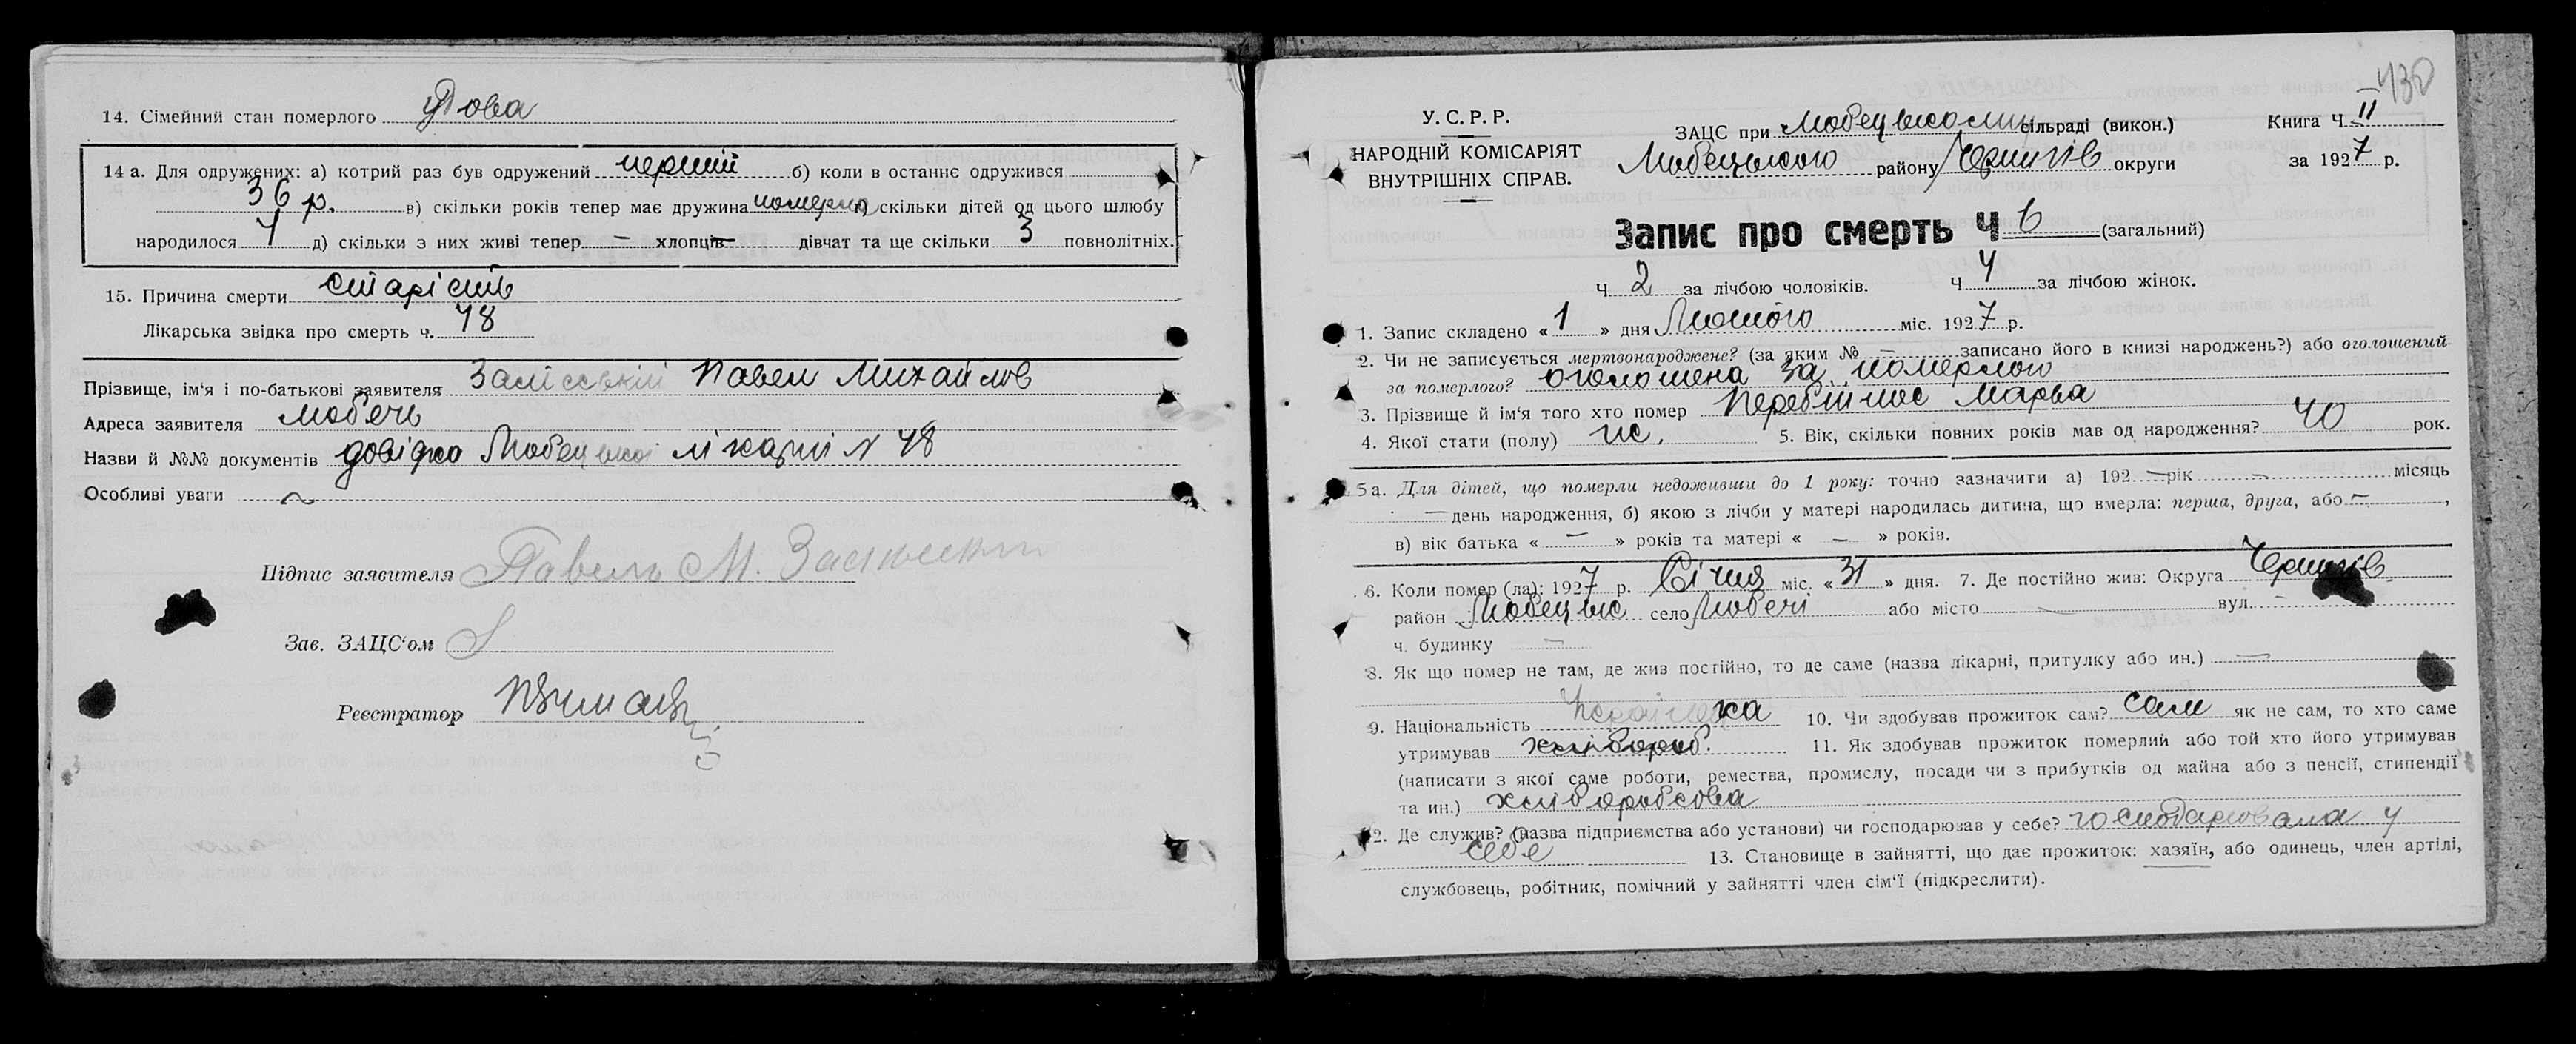 14. Сімейний стан померлого Удова
14 а. Для одружених: а) котрий раз був одружений перший б) коли в останнє одружився
36 р. в) скільки років тепер має дружина померла г) скільки дітей од цього шлюбу
народилося 4 д) скільки з них живі тепер — хлопців — дівчат та ще скільки 3 повнолітніх.
15. Причина смерти старість
Лікарська звідка про смерть ч. 48
Прізвище, ім'я і по-батькові заявителя Павел Михайлов
Адреса заявителя Любечь
Назви й №№ документів довідка Любецької лікарні N 48
Особливі уваги ~
Підпис заявителя Павелъ М.
Зав. ЗАЦС'ом
Реєстратор
430
У. С. Р. Р.
НАРОДНІЙ КОМІСАРІЯТ
ВНУТРІШНІХ СПРАВ.
ЗАЦС при сільраді (викон.) Книга Ч. II
Любецького району Чернигів округи за 1927 р.
Запис про смерть Ч 6 (загальний)
Ч 2 за лічбою чоловіків. Ч 4 за лічбою жінок.
1. Запис складено « 1 » дня Лютого міс. 1927 р.
2. Чи не записується мертвонароджене? (за яким № — записано його в книзі народжень?) або оголошений
за померлого? оголошена за померлою
3. Прізвище й ім'я того хто помер Марва
4. Якої стати (полу) жіс. 5. Вік, скільки повних років мав од народження? 70 рок.
5 а. Для дітей, що померли недоживши до 1 року: точно зазначити а) 192 — рік — місяць
— день народження, б) якою з лічби у матері народилась дитина, що вмерла: перша, друга, або — ,
в) вік батька « — » років та матері « — » років.
6. Коли помер (ла): 1927 р. Січня міс. « 31 » дня. 7. Де постійно жив: Округа Чернигів
район Любецьк село Любечі або місто — вул. —
ч. будинку —
8. Як що помер не там, де жив постійно, то де саме (назва лікарні, притулку або ин.) —
9. Національність Українка 10. Чи здобував прожиток сам? сам як не сам, то хто саме
утримував хлібороб. 11. Як здобував прожиток померлий або той хто його утримував
(написати з якої саме роботи, ремества, промислу, посади чи з прибутків од майна або з пенсії, стипендії
та ин.) хліборобсова
12. Де служив? (назва підприємства або установи) чи господарював у себе? господарювала у
себе 13. Становище в зайнятті, що дає прожиток: хазяїн, або одинець, член артілі,
службовець, робітник, помічний у зайнятті член сім'ї (підкреслити).